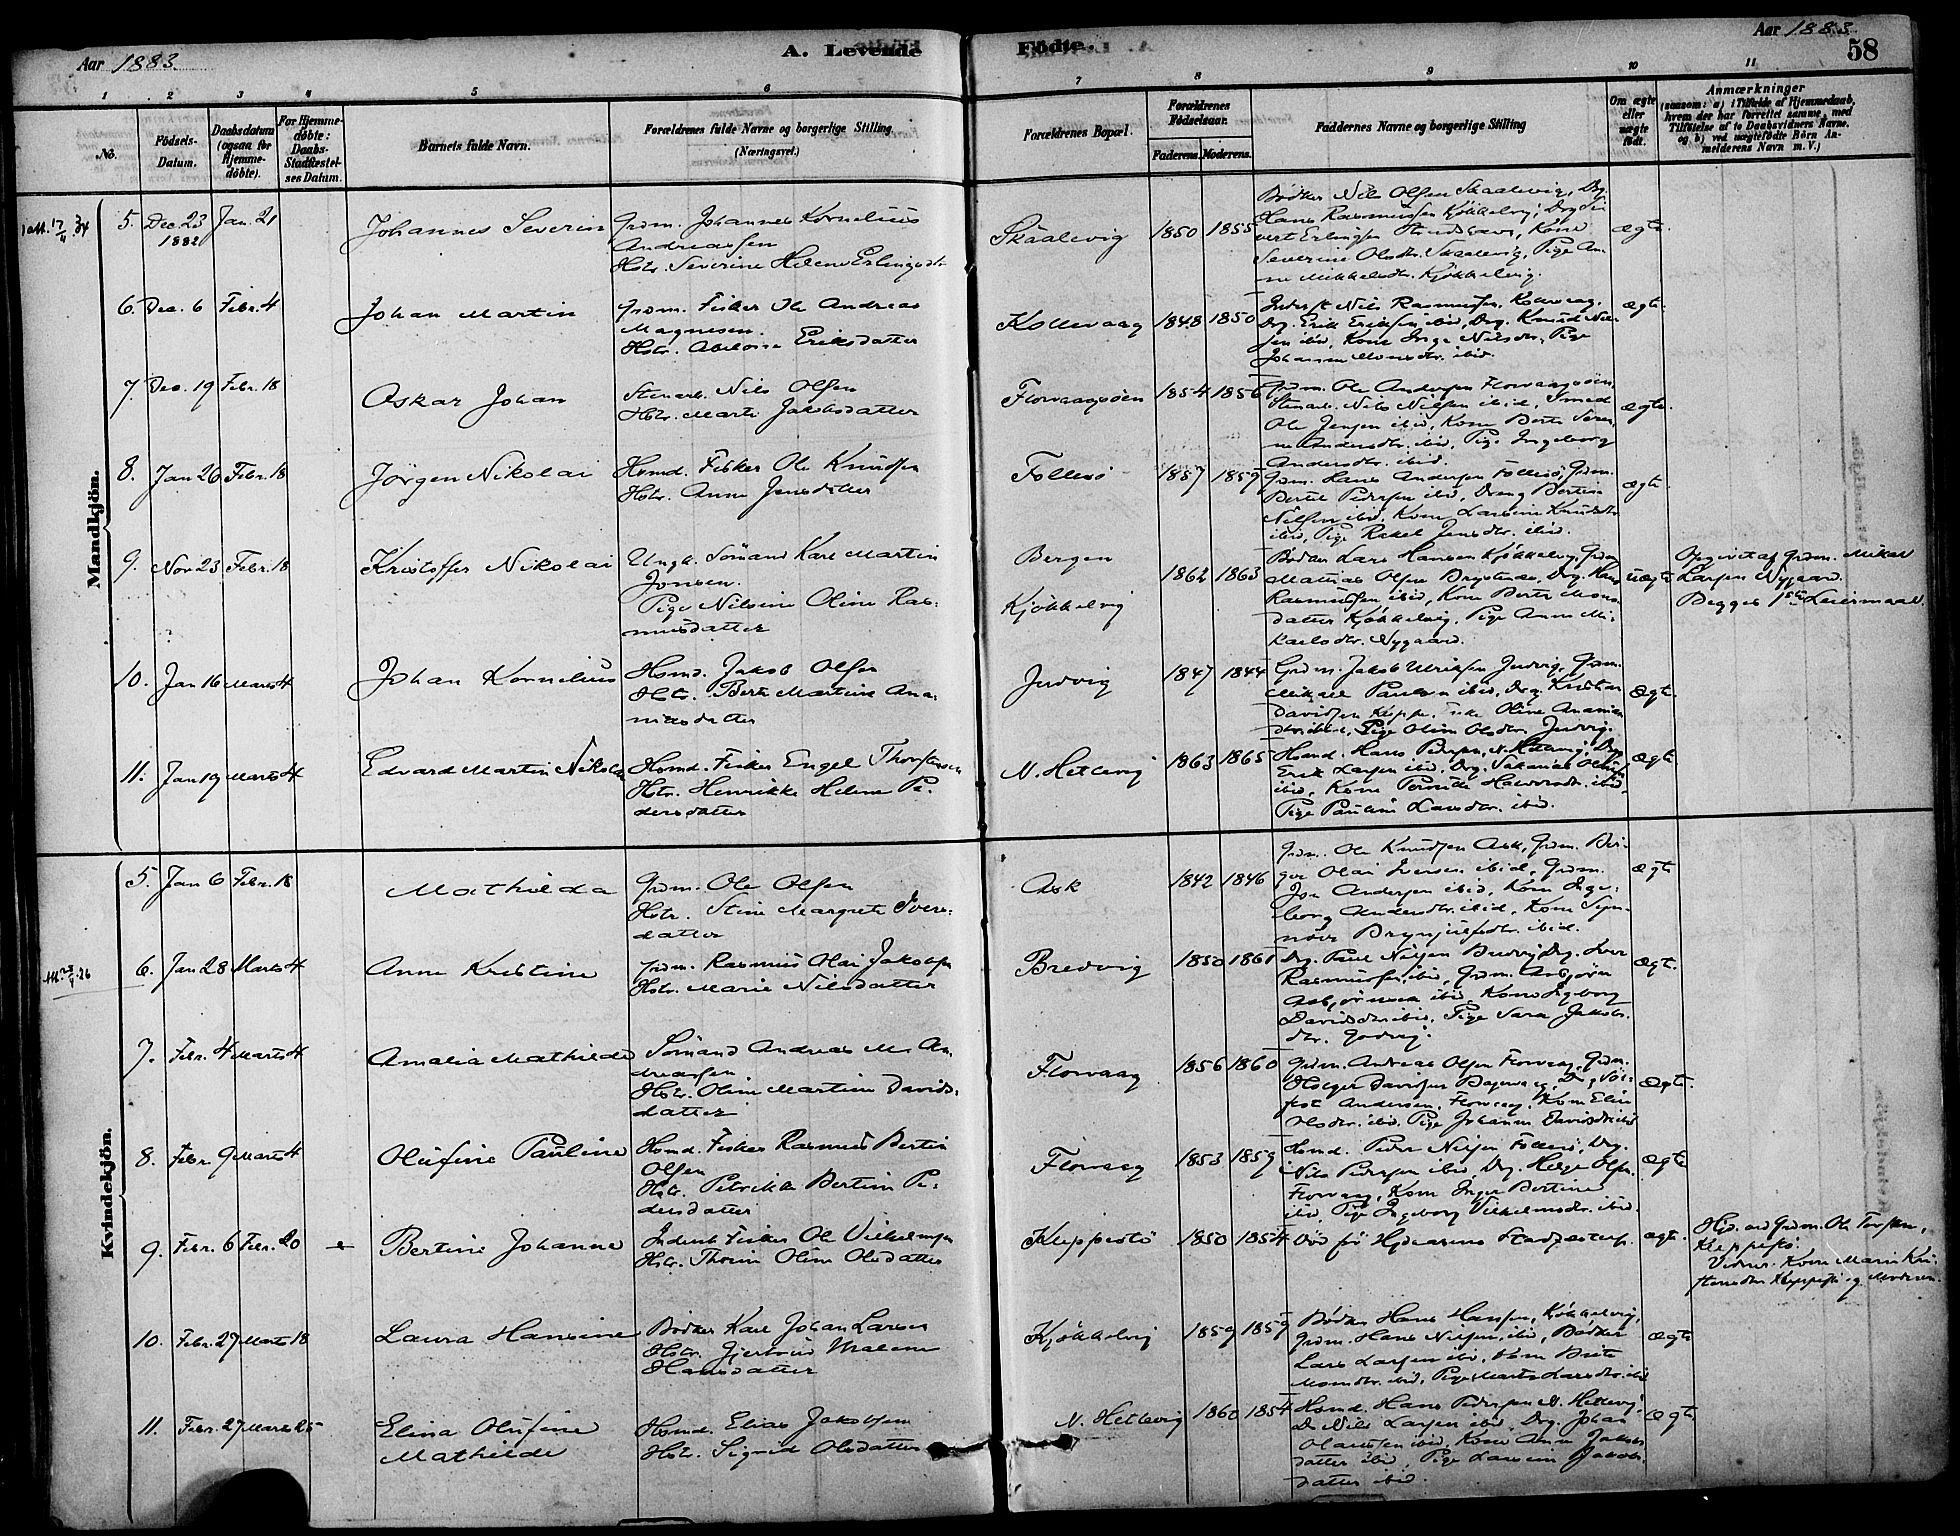 Aar 1883.
A. Levende
Fødte.
Aar 1883.
58
1 2 3 4 5 6 7 8 9 10 11
No.
Fødsels-
Datum.
Daabsdatum
(ogsaa for
Hjemme-
døbte).
For Hjemme-
døbte:
Daabs-
Stadfæstel-
ses Datum.
Barnets fulde Navn.
Forældrenes fulde Navne og borgerlige Stilling
(Næringsvei.)
Forældrenes Bopæl.
Forældrenes
Fødselsaar.
Faderens. Moderens.
Faddernes Navne og borgerlige Stilling
Om ægte
eller
uægte
født.
Anmærkninger
(saasom: a) i Tilfælde af Hjemmedaab,
hvem der har forrettet samme, med
Tilføielse af to Daabsvidners Navne.
og b) ved uægtefødte Børn An-
melderens Navn m. V.)
Mandkjön.
5. Dec. 23 Jan. 21
1882
Johannes Severin
Grdm. Johannes Kornelius
Andreassen
Hstr. Severine Helene Erlingsdtr
Skaalevig 1850 1855
Bødker Nils Olsen Skaalevig, Drg.
Hans Rasmussen Kjøkkelvig
Severine Olsdtr. Skaalevig, Pige An-
ne Mikkelsdtr. Kjøkkelvig.
ægte
6. Dec. 6 Febr. 4
Johan Martin
Grdm. Fisker Ole Andreas
Magnesen.
Hstr. Abelone Eriksdatter
Kollevaag 1848 1850
Inderst Nils Rasmussen, Kollevaag,
Drg. Erik Eriksen ibid, Drg. Knud Nil-
sen ibid, Kone Inge Nilsdtr., Pige
Johanne Monsdtr. ibid.
ægte.
7. Dec. 19 Febr. 18
Askar Johan
Stenarb. Nils Olsen
Hstr. Marte Jakobsdatter
Florvaagsøen 1854 1856
Grdm. Ole Andersen Florvaagsøen,
Stenarb. Nils Nilsen ibid, Smed
Ole Jensen ibid, Kone Berte Seve-
ne Andersdtr. ibid, Pige Ingeborg
Andersdtr. ibid.
ægte.
8. Jan 26 Febr. 18
Jörgen Nikolai
Hsmd. Fisker Ole Knudsen
Hstr. Anne Jensdatter
Follesø 1857 1859
Grdm. Hans Andersen Follesø, Grdm.
Bertel Pedersen ibid, Dreng Bertin
Nilsen ibid, Kone Larsine Knudsdtr.
ibid, Pige Rakel Jensdtr. ibid.
ægte
9. Nov 23 Febr. 18
Kristoffer Nikolai
Ungk. Sømand Karl Martin
Jonsen.
Pige Nilsine Oline Ras-
musdatter
Bergen
Kjøkkelvig
1862 1863
Bødker Lars Hansen Kjøkkelvig, Grdm
Mattias Olsen, Drg. Hans
Rasmussen ibid, Kone Berte Mons-
datter Kjøkkelvig, Pige Anne Mi-
kaelsdtr. Nygaard.
uægte
Opgivet af Grdm. Mikal
Larsen Nygaard.
Begges 1ste Leiermaal.
10. Jan 16 Marts 4
Johan Kornelius
Hsmd. Jakob Olsen
Hstr. Berte Martine Ana-
niasdatter
Juvig 1847 1844
Grdm. Jakob Ulriksen Judvig, Grdm.
Mikael Paulsen ibid, Drg. Kristian
Davidsen
Pige Oline Olsdtr. Judvig.
ægte.
11. Jan 19 Marts 4
Edvard Martin Nikolai
Hsmd. Fisker Engel Thorstensen
Hstr. Henrikke Helene Pe-
dersdatter
N. Hetlevig 1863 1865
Hsmd. Hans Pedersen, N. Hetlevig, Drg.
Erik Larsen ibid, Drg. Sakarias Olsen
ibid, Kone Pernille Halvorsdtr. ibid,
Pige Pauline Larsdtr. ibid.
ægte
Kvindekjön.
5. Jan 6 Febr. 18
Mathilda
Grdm. Ole Olsen
Hstr. Stine Margrete Ivers-
datter
Ask 1842 1846
Grdm. Ole Knudsen Ask, Grdm. Bir-
ger Olai Iversen ibid, Grdm.
Jon Andersen ibid, Kone Inge-
borg Andersdtr. ibid, Kone Syn-
nøve Brynjulfsdtr. ibid.
ægte
6. Jan 28 Marts 4
Anne Kristine
Grdm. Rasmus Olai Jakobsen
Hstr. Marie Nilsdatter
Bredvig 1850 1861
Drg. Paul Nilsen Bredvig, Drg. Iver
Rasmussen ibid, Grdm. Asbjørn
Asbjørnsen ibid, Kone Ingeborg
Davidsdtr ibid, Pige Sara Jakobs-
dtr. Godvig.
ægt.
7. Febr. 4 Marts 4
Amalia Mathilde
Sømand Andreas M. An-
dreassen
Hstr. Oline Martine Davids-
datter
Florvaag 1856 1860
Grdm. Andreas Olsen Florvaag, Grdm.
Holger Davidsen
Andersen, Florvaag, Kone Elen
Olsdtr. ibid, Pige Johanne Davidsdtr ibid
ægte.
8. Febr. 9 Marts 4
Olufine Pauline
Hsmd. Fisker Rasmus Bertin
Olsen
Hstr. Petrikke Bertine Pe-
dersdatter
Florvaag 1853 1859
Hsmd. Peder Nilsen Follesø, Drg.
Nils Pedersen ibid, Drg. Helge Olsen
Florvaag, Kone Inger Bertine
ibid, Pige Ingeborg Vilhelmsdtr. ibid.
ægte
9. Febr. 6 Febr. 20
Bertine Johanne
Inderst Fisker Ole Vilhelmsen
Hstr. Thorine Oline Olsdatter
Kleppestø 1850 1854
Død før Hjdaabens Stadfæstelse.
ægt.
Hjd. ved Grdm. Ole Torsten,
Kleppestø.
Vidner. Kone Marie Kri-
stensdtr Kleppestø og Moderen.
10. Febr. 27 Marts 18
Laura Hansine
Bødker Karl Johan Larsen
Hstr. Gjertrud Malene
Hansdatter
Kjökkelvig 1859 1859
Bødker Hans Hansen, Kjøkkelvig,
Grdm. Hans Nilsen, ibid, Bødker
Lars Larsen ibid, Kone Brite
Monsdtr. ibid, Pige Marta Larsdtr. ibid
ægte
11. Febr. 27 Marts 25
Elina Olufine
Mathilde
Hsmd. Elias Jakobsen
Hstr. Sigrid Olsdatter
N. Hetlevig 1860 1854
Hsmd. Hans Pedersen N. Hetlevig,
Dr. Nils Larsen ibid, Drg. Johan
Olaisen ibid, Kone Anne Jakobs-
datter ibid, Pige Larsine Jakobs-
datter ibid.
ægte